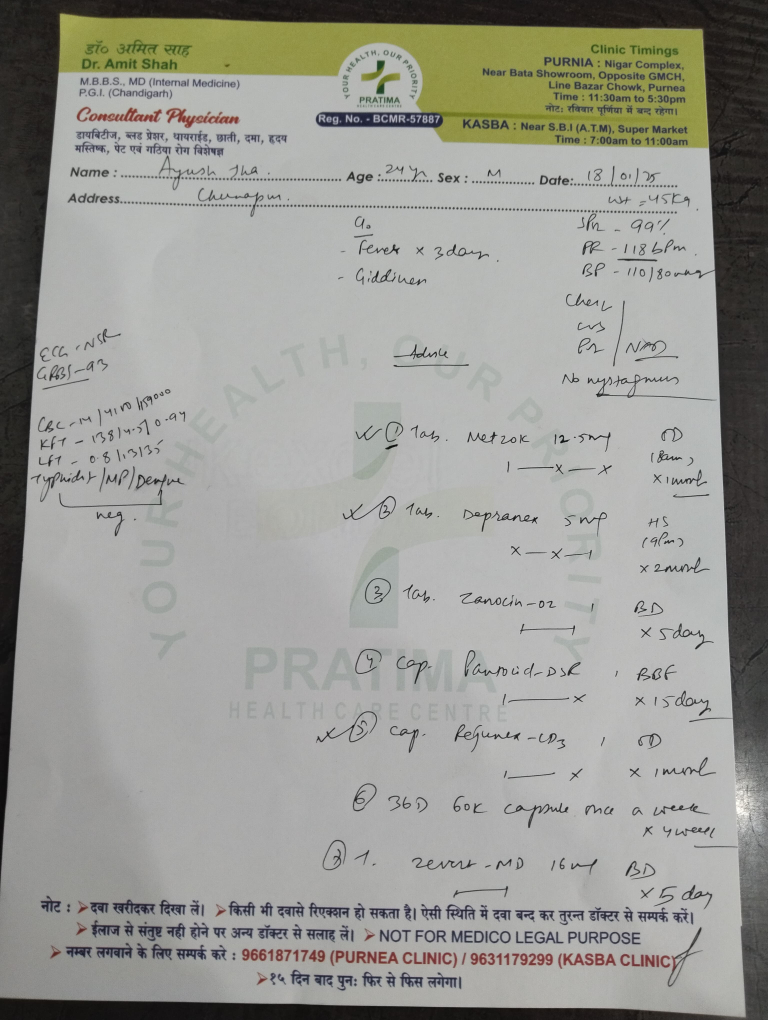 डॉ० अमित साह
Dr. Amit Shah
M.B.B.S., MD (Internal Medicine)
P.G.I. (Chandigarh)
Consultant Physician
डायबिटीज, ब्लड प्रेशर, थायराईड, छाती, दमा, हृदय
मस्तिष्क, पेट एवं गठिया रोग विशेषज्ञ
YOUR HEALTH, OUR PRIORITY
PRATIMA
HEALTH CARE CENTRE
Reg. No. - BCMR-57887
Clinic Timings
PURNIA : Nigar Complex,
Near Bata Showroom, Opposite GMCH,
Line Bazar Chowk, Purnea
Time : 11:30am to 5:30pm
नोट: रविवार पूर्णिया में बन्द रहेगा।
KASBA : Near S.B.I (A.T.M), Super Market
Time : 7:00am to 11:00am
Name : Ayush Jha. Age : 24 yr. Sex : M Date: 18/01/25
Address Chunapur. wt = 45kg.
C/o
- Fever x 3 day.
- Giddiness
SPO2 - 99%
PR - 118 bpm.
BP - 110/80 mmHg
Chest
CVS
P/A NAD
No nystagmus
ECG - NSR
GRBS - 93
CBC - 14/4100/159000
KFT - 138/4.5/0.94
LFT - 0.8/13/35
Typhidot/MP/Dengue
neg.
Advice
① Tab. Metzok 12.5mg OD
1 — x — x (8am)
x 1 month
② Tab. Depranex 5mg HS
x — x — 1 (9pm)
x 2 month
③ Tab. Zanocin-OZ, BD
x 5 day
④ Cap. Pantocid-DSR, BBF
1 — x x 15 day
⑤ Cap. Rejunex-CD3, OD
1 — x x 1 month
⑥ 36D 60K capsule once a week
x 4 week
⑦ T. Zevert-MD 16mg BD
x 5 day
YOUR HEALTH, OUR PRIORITY
PRATIMA
HEALTH CARE CENTRE
नोट : ➤दवा खरीदकर दिखा लें। ➤किसी भी दवासे रिएक्शन हो सकता है। ऐसी स्थिति में दवा बन्द कर तुरन्त डॉक्टर से सम्पर्क करें।
➤ईलाज से संतुष्ट नही होने पर अन्य डॉक्टर से सलाह लें। ➤NOT FOR MEDICO LEGAL PURPOSE
➤नम्बर लगवाने के लिए सम्पर्क करे : 9661871749 (PURNEA CLINIC) / 9631179299 (KASBA CLINIC)
➤१५ दिन बाद पुन: फिर से फिस लगेगा।